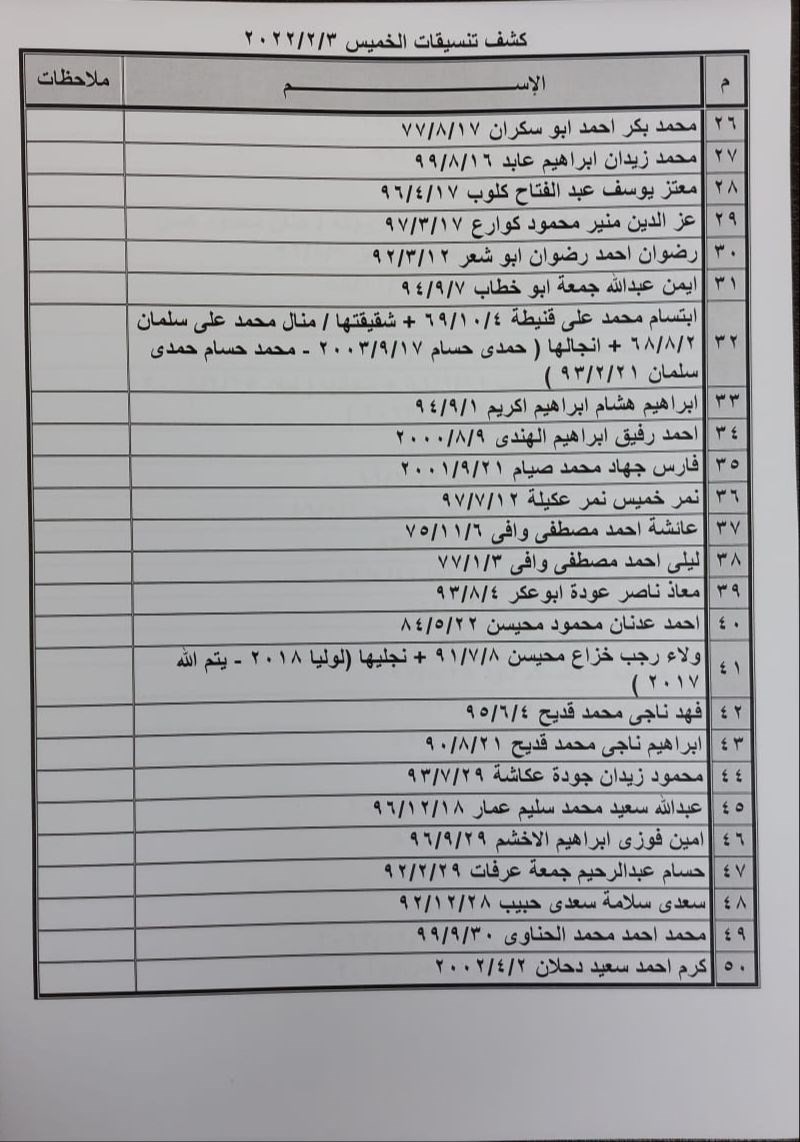 كشف تنسيقات الخميس ٢٠٢٢/٢/٣
م الإســــــــــــم ملاحظات
٢٦ محمد بكر احمد ابو سكران ٧٧/٨/١٧
٢٧ محمد زيدان ابراهيم عابد ٩٩/٨/١٦
٢٨ معتز يوسف عبد الفتاح كلوب ٩٦/٤/١٧
٢٩ عز الدين منير محمود كوارع ٩٧/٣/١٧
٣٠ رضوان احمد رضوان ابو شعر ٩٢/٣/١٢
٣١ ايمن عبدالله جمعة ابو خطاب ٩٤/٩/٧
٣٢ ابتسام محمد على قنيطة ٦٩/١٠/٤ + شقيقتها / منال محمد على سلمان
٦٨/٨/٢ + انجالها ( حمدى حسام ٢٠٠٣/٩/١٧ - محمد حسام حمدى
سلمان ٩٣/٢/٢١ )
٣٣ ابراهيم هشام ابراهيم اكريم ٩٤/٩/١
٣٤ احمد رفيق ابراهيم الهندى ٢٠٠٠/٨/٩
٣٥ فارس جهاد محمد صيام ٢٠٠١/٩/٢١
٣٦ نمر خميس نمر عكيلة ٩٧/٧/١٢
٣٧ عائشة احمد مصطفى وافى ٧٥/١١/٦
٣٨ ليلى احمد مصطفى وافى ٧٧/١/٣
٣٩ معاذ ناصر عودة ابوعكر ٩٣/٨/٤
٤٠ احمد عدنان محمود محيسن ٨٤/٥/٢٢
٤١ ولاء رجب خزاع محيسن ٩١/٧/٨ + نجليها (لوليا ٢٠١٨ - يتم الله
٢٠١٧ )
٤٢ فهد ناجى محمد قديح ٩٥/٦/٤
٤٣ ابراهيم ناجى محمد قديح ٩٠/٨/٢١
٤٤ محمود زيدان جودة عكاشة ٩٣/٧/٢٩
٤٥ عبدالله سعيد محمد سليم عمار ٩٦/١٢/١٨
٤٦ امين فوزى ابراهيم الاخشم ٩٦/٩/٢٩
٤٧ حسام عبدالرحيم جمعة عرفات ٩٢/٢/٢٩
٤٨ سعدى سلامة سعدى حبيب ٩٢/١٢/٢٨
٤٩ محمد احمد محمد الحناوى ٩٩/٩/٣٠
٥٠ كرم احمد سعيد دحلان ٢٠٠٢/٤/٢